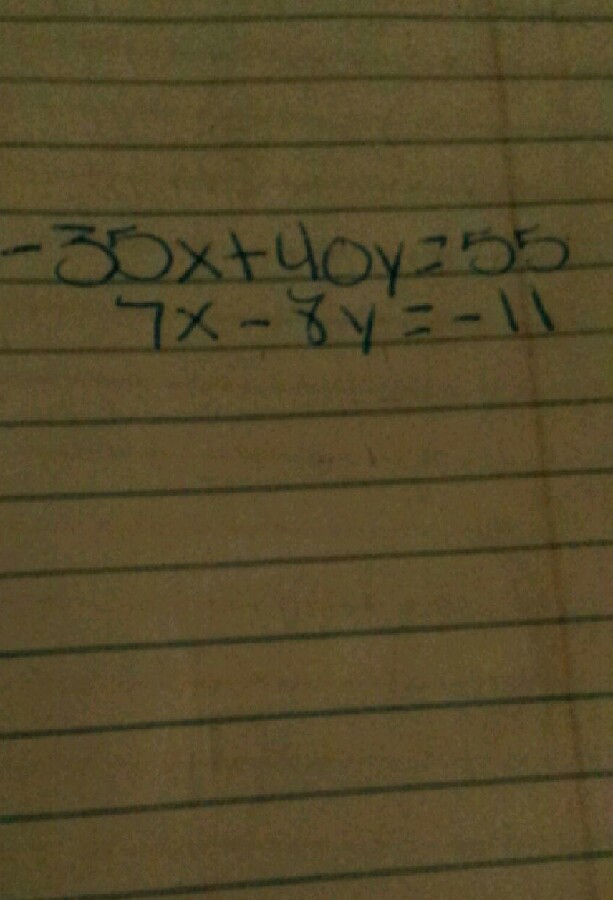 -35x+40y=55
7x-8y=-11